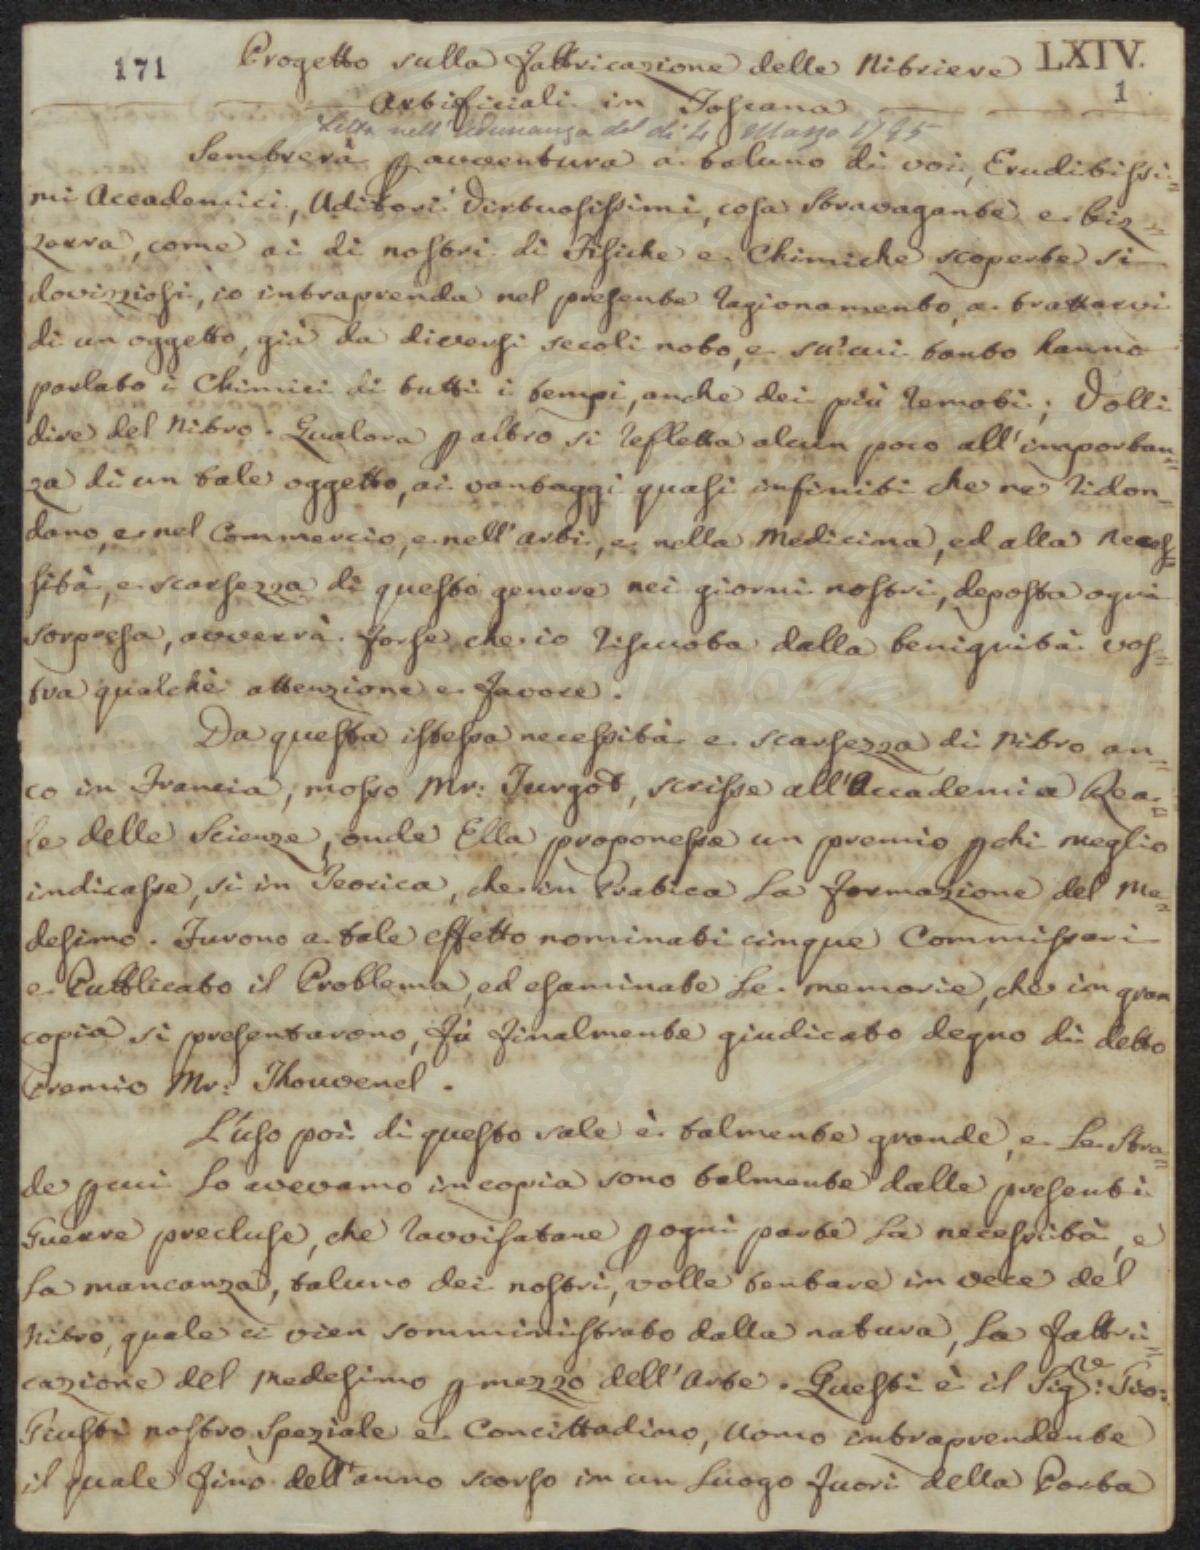 171
LXIV.
1
Progetto sulla Fabbricazione delle Nitriere
Artificiali in Toscana
Letta nell'Adunanza del dì 4 Marzo 1795
Sembrerà p avventura a taluno di voi, Eruditissi=
mi Accademici, Uditori Virtuosissimi, cosa stravagante e biz=
zarra, come ai dì nostri di Fisiche e Chimiche scoperte sì
doviziosi, io intraprenda nel presente ragionamento, a trattarvi
di un oggetto, già da diversi secoli noto, e su' cui tanto hanno
parlato i Chimici di tutti i tempi, anche dei più remoti; Volli
dire del Nitro. Qualora p altro si refletta alcun poco all'importan=
za di un tale oggetto, ai vantaggi quasi infiniti che ne ridon=
dano, e nel Commercio, e nell'Arti, e nella Medicina, ed alla neces=
sità, e scarsezza di questo genere nei giorni nostri, deposta ogni
sorpresa, avverrà forse che io riscuota dalla benignità vos=
tra qualche attenzione e favore.
Da questa istessa necessità e scarsezza di Nitro an=
co in Francia, mosso Mr: Turgot, scrisse all'Accademia Rea=
le delle Scienze, onde Ella proponesse un premio p chi meglio
indicasse, sì in Teorica, che in Pratica la formazione del Me=
desimo. Furono a tale effetto nominati cinque Commissari
e Pubblicato il Problema, ed esaminate le memorie, che in gran
copia si presentarono, fù finalmente giudicato degno di detto
Premio Mr: Thouvenel.
L'uso poi di questo sale è talmente grande, e le stra=
de p cui lo avevamo in copia sono talmente dalle presenti
Guerre precluse, che ravvisatane p ogni parte la necessità, e
la mancanza, taluno dei nostri, volle tentare in vece del
Nitro, quale ci vien somministrato dalla natura, la fabbri=
cazione del Medesimo p mezzo dell'Arte. Questi è il Sigre: Gio:
Giusti nostro Speziale e Concittadino, Uomo intraprendente
il quale fino dell'anno scorso in un Luogo fuori della Porta